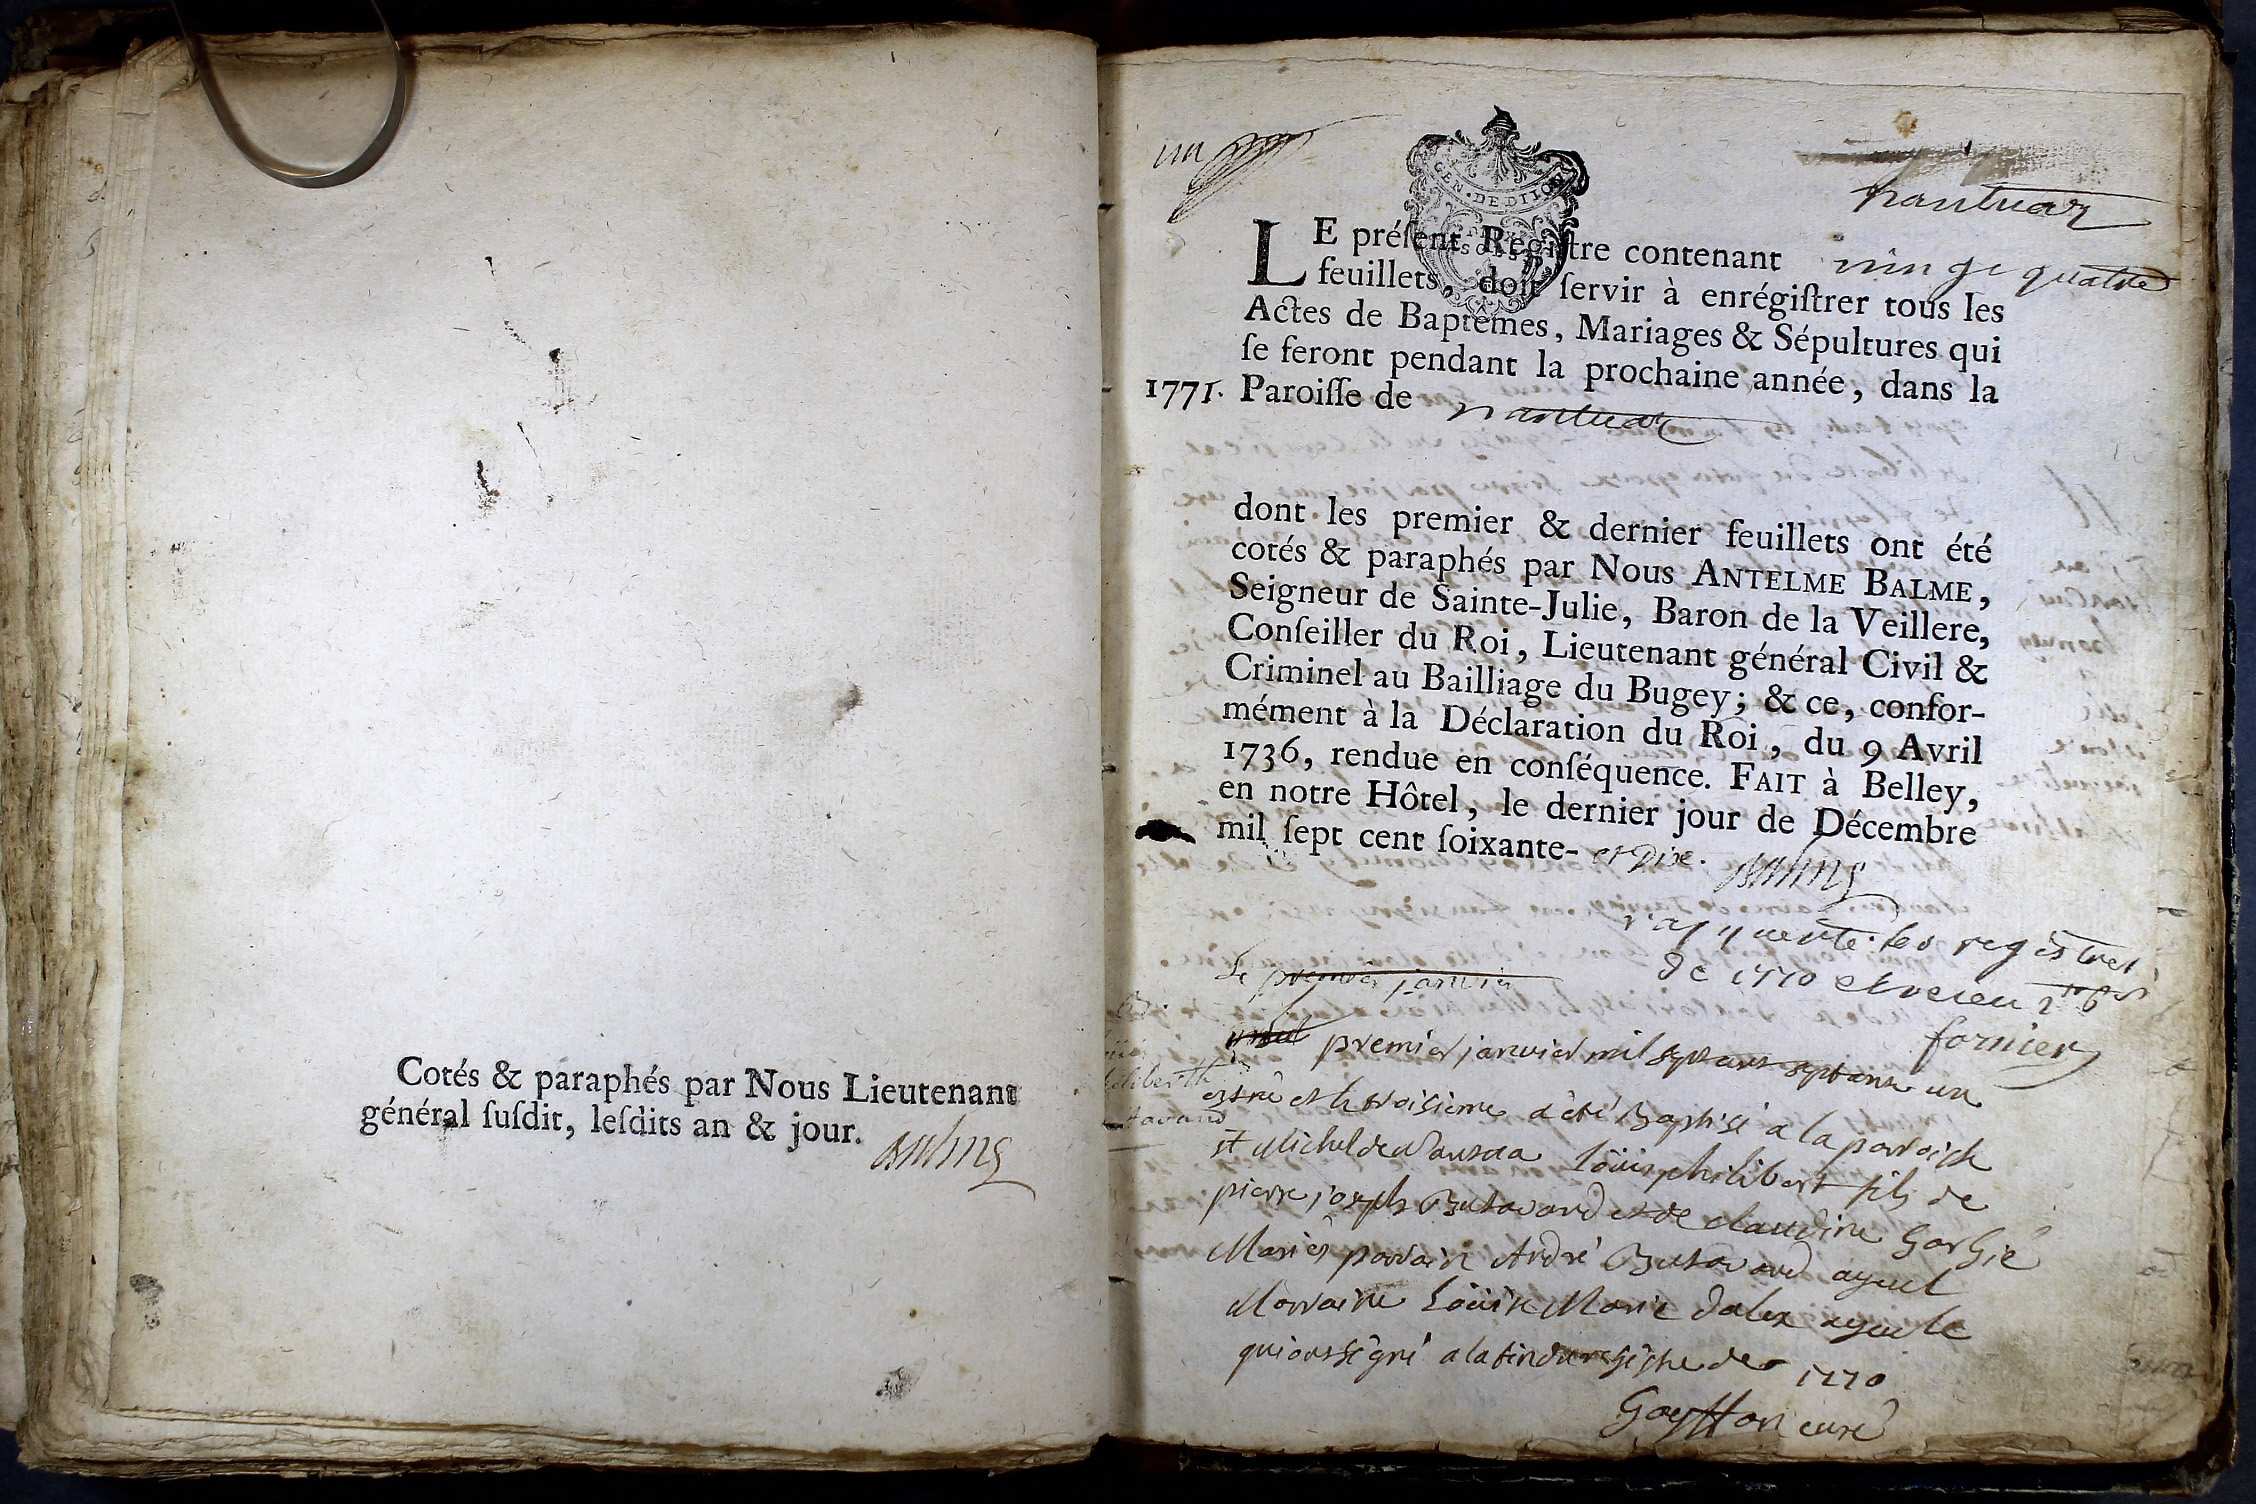 Cotés & paraphés par Nous Lieutenant
général ſuſdit, leſdits an & jour.
Balme
un
GEN · DE DIJON
nantuaz
LE préſent Regiſtre contenant vingt quatre
feuillets, doit ſervir à enrégiſtrer tous les
Actes de Baptêmes, Mariages & Sépultures qui
ſe feront pendant la prochaine année, dans la
1771. Paroiſſe de nantuaz
dont les premier & dernier feuillets ont été
cotés & paraphés par Nous ANTELME BALME,
Seigneur de Sainte-Julie, Baron de la Veillere,
Conſeiller du Roi, Lieutenant général Civil &
Criminel au Bailliage du Bugey; & ce, confor-
mément à la Déclaration du Roi, du 9 Avril
1736, rendue en conſéquence. FAIT à Belley,
en notre Hôtel, le dernier jour de Décembre
mil ſept cent ſoixante- et Dix. Balme
les registres
de 1770 et receu
fornier
Le premier janvier
premier janvier mil sept cent septante un
est né et le troisieme a été Baptisé a la parroisse
st Michel de Louis philibert fils de
pierre joseph Butavand et de claudine Gorgié
Mariés parrain André Butavand ayeul
Marraine Loüise Marie dalex ayeule
qui ont signé a la fin du registre de 1770
Goyffon curé